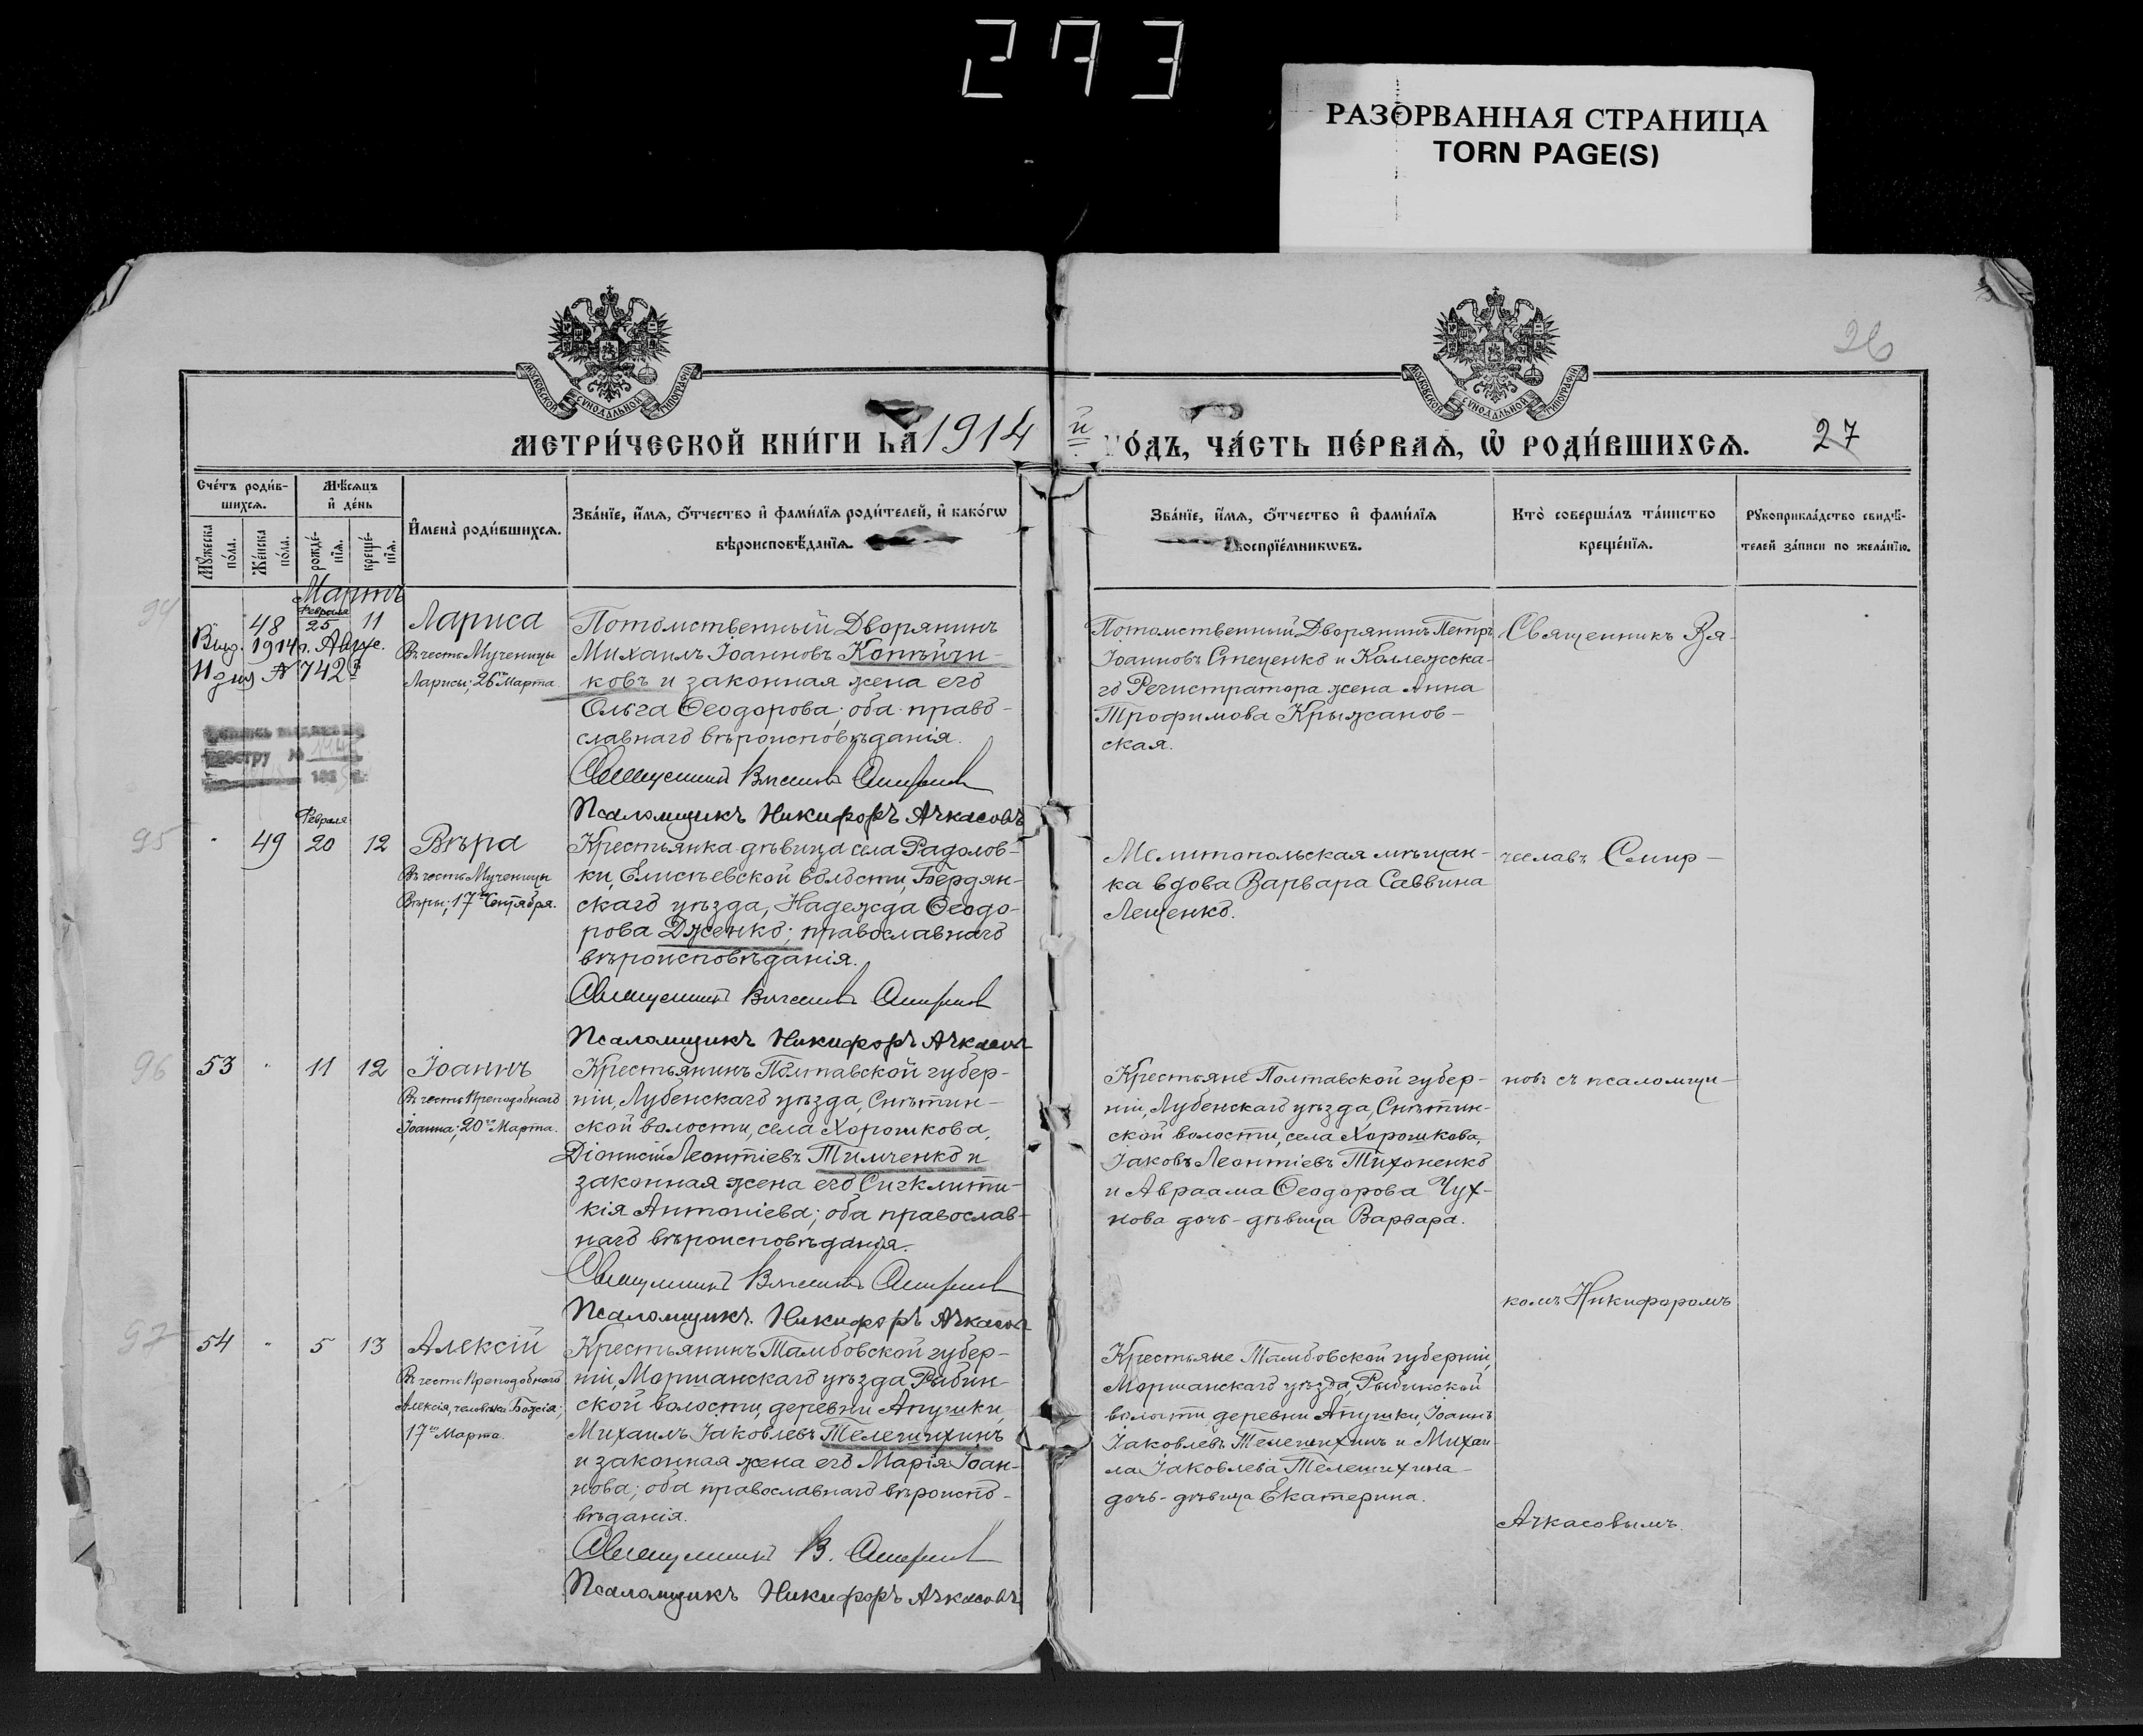 273
РАЗОРВАННАЯ СТРАНИЦА
TORN PAGE(S)
26
МОСКОВСКОЙ СѴНОДАЛЬНОЙ ТИПОГРАФІИ
МОСКОВСКОЙ СѴНОДАЛЬНОЙ ТИПОГРАФІИ
МЕТРИ́ЧЕСКОЙ КНИ́ГИ НА 1914 й ГО́ДЪ, ЧА́СТЬ ПЕ́РВАѦ, Ѽ РОДИ́ВШИХСѦ.
27
Сче́тъ роди́в-
шихсѧ.
Мѣ́сѧцъ
и҆ де́нь
Мꙋ́жеска по́ла.
Же́нска по́ла.
рожде́-нїѧ.
креще́-нїѧ.
И҆мена̀ роди́вшихсѧ.
Зва́нїе, и҆́мѧ, ѻ҆́тчество и҆ фами́лїѧ роди́телей, и҆ како́гѡ
вѣроисповѣ́данїѧ.
Зва́нїе, и҆́мѧ, ѻ҆́тчество и҆ фами́лїѧ
воспрїе́мникѡвъ.
Кто̀ соверша́лъ та́инство
креще́нїѧ.
Рꙋкоприкла́дство свидѣ́-
телей за́писи по жела́нїю.
Мартъ
94
48
Февраля
25
11
Лариса
Въ честь Мученицы
Ларисы; 26го Марта
Выд. 1914 г. Авгус.
11 дня № 742
реестру №
Потомственный Дворянинъ
Михаилъ Іоанновъ Копѣйчи-
ковъ и законная жена его
Ольга Ѳеодорова; оба право-
славнаго вѣроисповѣданія.
Священникъ Вячеславъ Смирновъ
Псаломщикъ Никифоръ Ачкасовъ
Потомственный Дворянинъ Петръ
Іоанновъ Стеценко и Коллежска-
го Регистратора жена Анна
Трофимова Крыжанов-
ская.
Священникъ Вя-
95
"
49
Февраля
20
12
Вѣра
Въ честь Мученицы
Вѣры; 17го Сентября.
Крестьянка-дѣвица села Радолов-
ки, Елисѣевской волости, Бердян-
скаго уѣзда, Надежда Ѳеодо-
рова Дженко; православнаго
вѣроисповѣданія.
Священникъ Вячеславъ Смирновъ
Псаломщикъ Никифоръ Ачкасовъ
Мелитопольская мѣщан-
ка вдова Варвара Саввина
Лещенко.
чеславъ Смир-
96
53
"
11
12
Іоаннъ
Въ честь Преподобнаго
Іоанна; 20го Марта.
Крестьянинъ Полтавской губер-
ніи, Лубенскаго уѣзда, Снѣтин-
ской волости, села Хорошкова,
Діонисій Леонтіевъ Тимченко и
законная жена его Сигклити-
кія Антоніева; оба православ-
наго вѣроисповѣданія.
Священникъ Вячеславъ Смирновъ
Псаломщикъ Никифоръ Ачкасовъ
Крестьяне Полтавской губер-
ніи, Лубенскаго уѣзда, Снѣтин-
ской волости, села Хорошкова,
Іаковъ Леонтіевъ Тихоненко
и Авраама Ѳеодорова Чух-
нова дочь-дѣвица Варвара.
новъ съ псаломщи-
комъ Никифоромъ
97
54
"
5
13
Алексій
Въ честь Преподобнаго
Алексія, человѣка Божія;
17го Марта.
Крестьянинъ Тамбовской губер-
ніи, Моршанскаго уѣзда Рыбин-
ской волости, деревни Апушки,
Михаилъ Іаковлевъ Телешихинъ
и законная жена его Марія Іоан-
нова; оба православнаго вѣроиспо-
вѣданія.
Священникъ В. Смирновъ
Псаломщикъ Никифоръ Ачкасовъ
Крестьяне Тамбовской губерніи,
Моршанскаго уѣзда, Рыбинской
волости деревни Апушки, Іоаннъ
Іаковлевъ Телешихинъ и Михаи-
ла Іаковлева Телешихина
дочь-дѣвица Екатерина.
Ачкасовымъ.